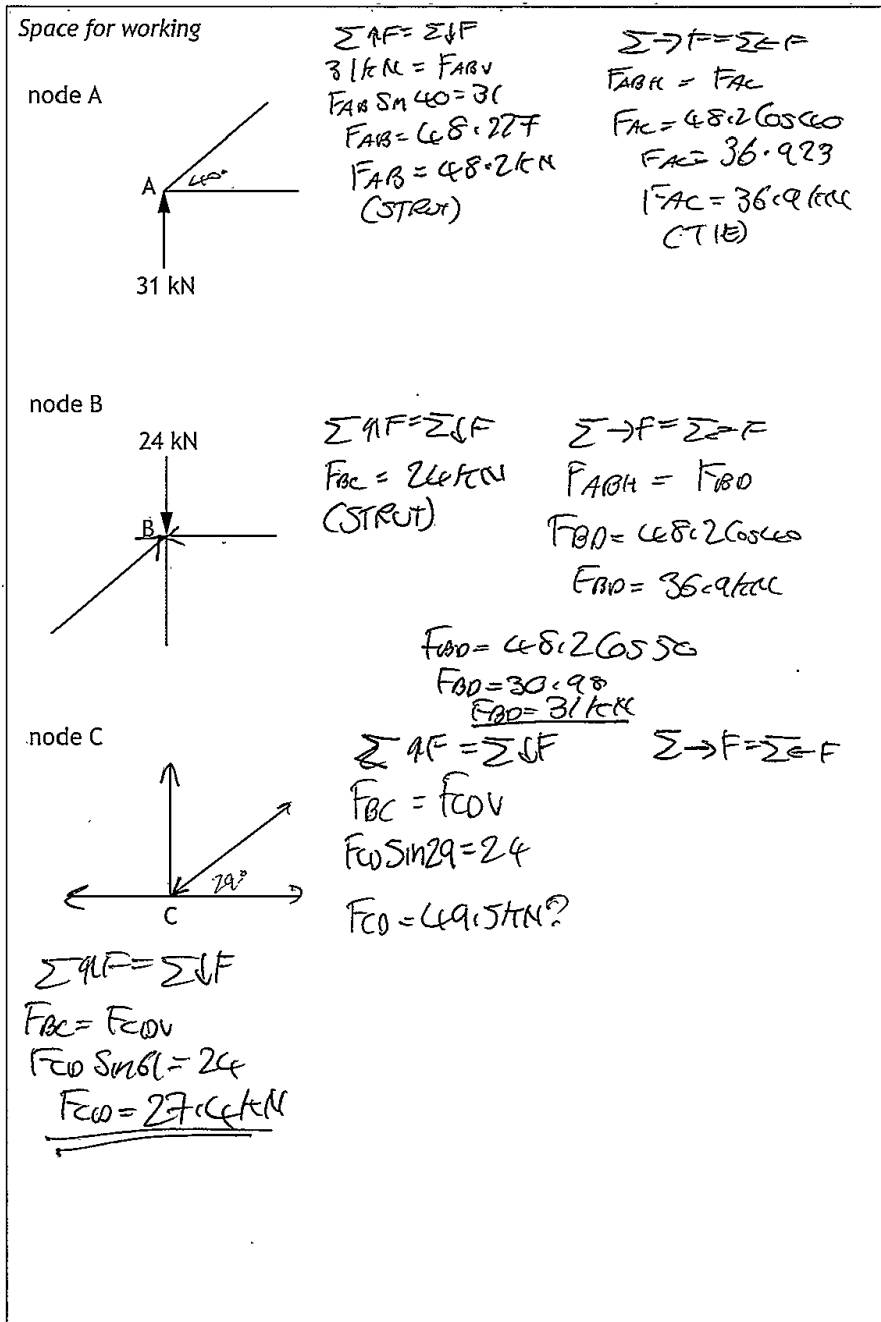 Space for working
Σ↑F = Σ↓F
31kN = FABV
FAB Sin 40 = 31
FAB = 48.227
FAB = 48.2kN
(STRUT)
Σ→F = Σ←F
FABH = FAC
FAC = 48.2 Cos40
FAC = 36.923
FAC = 36.9kN
(TIE)
node A
40°
A
31 kN
node B
24 kN
B
Σ↑F = Σ↓F
FBC = 24kN
(STRUT)
Σ→F = Σ←F
FABH = FBD
FBD = 48.2 Cos40
FBD = 36.9kN
FBD = 48.2 Cos 50
FBD = 30.98
FBD = 31kN
node C
29°
C
Σ↑F = Σ↓F
FBC = FCDV
FCD Sin29 = 24
FCD = 49.5kN?
Σ→F = Σ←F
Σ↑F = Σ↓F
FBC = FCDV
FCD Sin61 = 24
FCD = 27.4kN